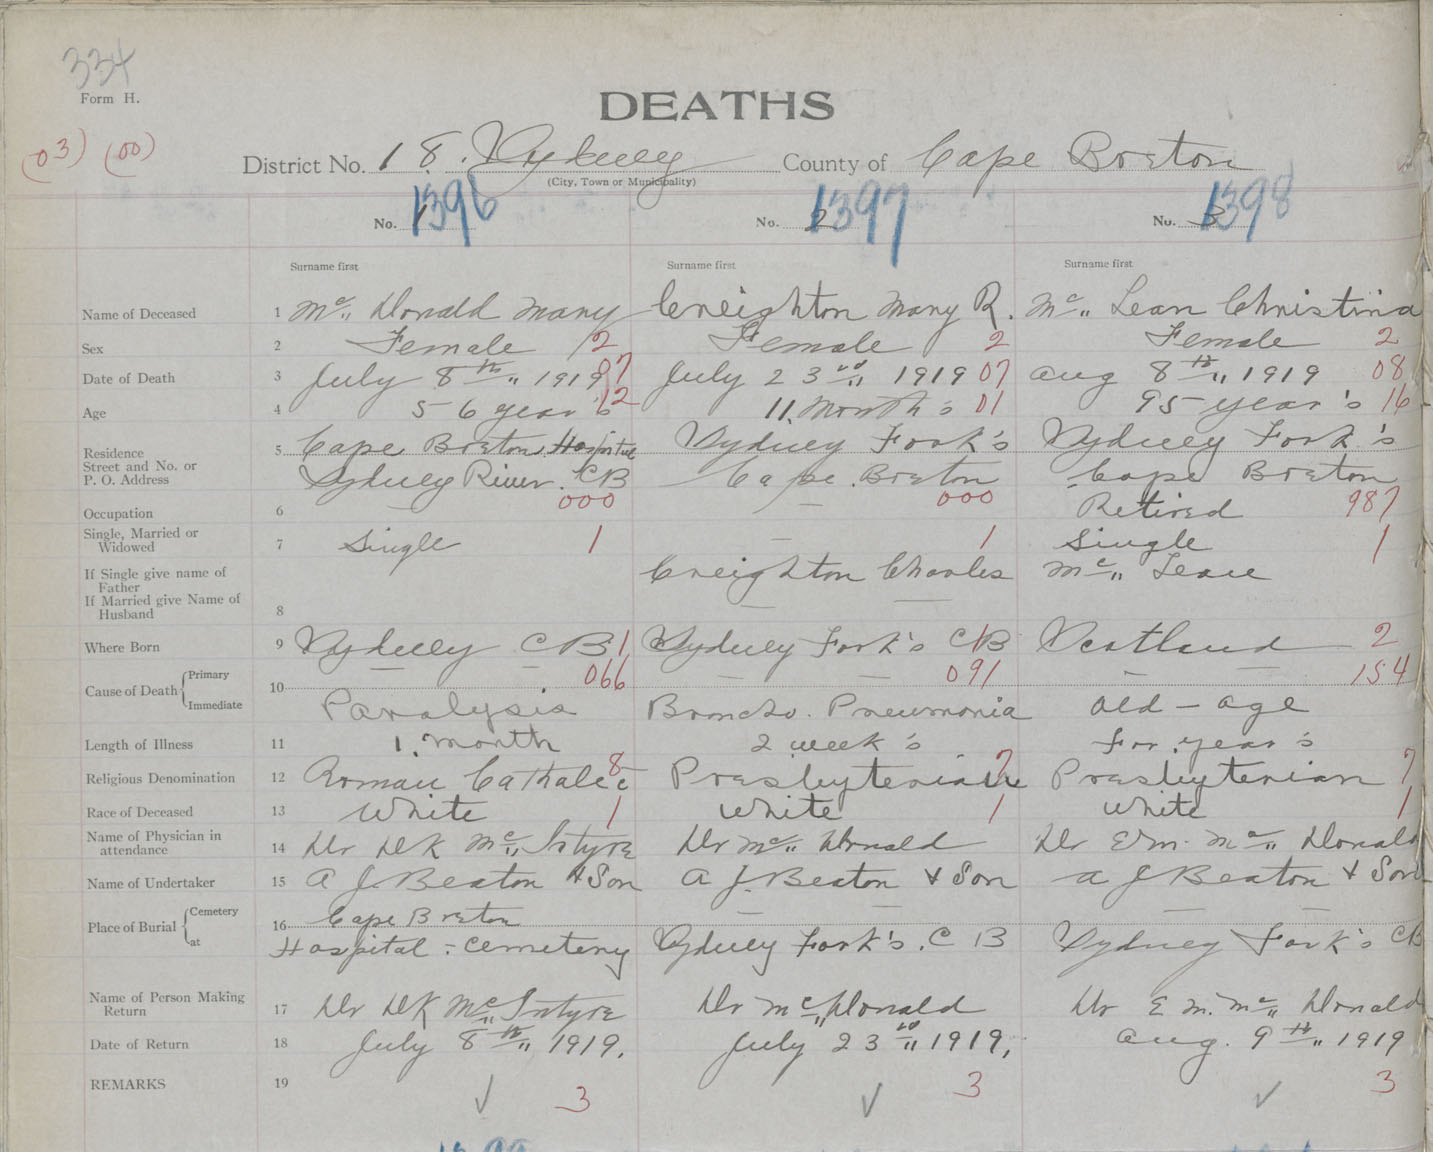 334
Form H.
DEATHS
(03) (00)
District No. 18. Sydney County of Cape Breton
(City, Town or Municipality)
No. 1 1396 No. 2 1397 No. 3 1398
Surname first Surname first Surname first
Name of Deceased 1 Mc Donald Mary Creighton Mary R. Mc Lean Christina
Sex 2 Female 2 Female 2 Female 2
Date of Death 3 July 8th 1919 07 July 23rd 1919 07 Aug 8th 1919 08
Age 4 56 year's 12 11 Month's 01 95 year's 16
Residence 5 Cape Breton Hospital Sydney Fork's Sydney Fork's
Street and No. or
P. O. Address Sydney River. CB Cape Breton Cape Breton
Occupation 6 — 000 — 000 Retired 987
Single, Married or
Widowed 7 Single 1 — 1 Single 1
If Single give name of
Father Creighton Charles Mc Lean
If Married give Name of
Husband 8 — —
Where Born 9 Sydney CB 1 Sydney Fork's CB 1 Scotland 2
Cause of Death Primary — — 066 — — 091 — — 154
Immediate 10 Paralysis Broncho. Pneumonia old – age
Length of Illness 11 1. month 2 week's For year's
Religious Denomination 12 Roman Catholic 8 Presbyterian 7 Presbyterian 7
Race of Deceased 13 White 1 White 1 White 1
Name of Physician in
attendance 14 Dr DK Mc Intyre Dr Mc Donald Dr E M. Mc Donald
Name of Undertaker 15 A J. Beaton & Son A J. Beaton & Son A J Beaton & Son
Place of Burial Cemetery 16 Cape Breton — — — —
at Hospital - Cemetery Sydney Fork's. C B Sydney Fork's CB
Name of Person Making
Return 17 Dr DK Mc Intyre Dr Mc Donald Dr E M. Mc Donald
Date of Return 18 July 8th 1919. July 23rd 1919, Aug. 9th 1919
REMARKS 19 ✓ 3 ✓ 3 ✓ 3